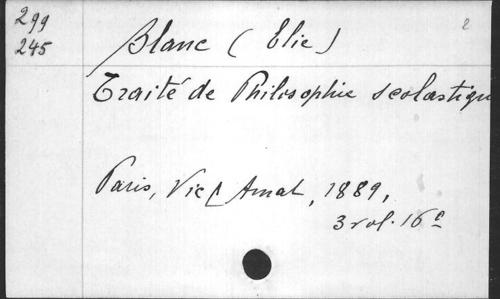 299
245
2
Blanc (Elie)
Traité de Philosophie scolastique
Paris, Vic & Amat, 1889,
3 vol. 16°